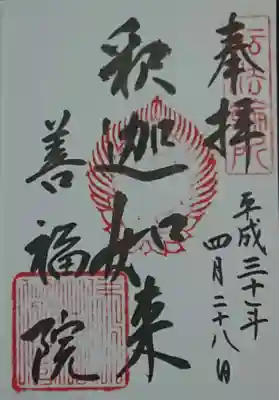 奉拝
平成三十一年
四月二十八日
釈迦如来
善福院